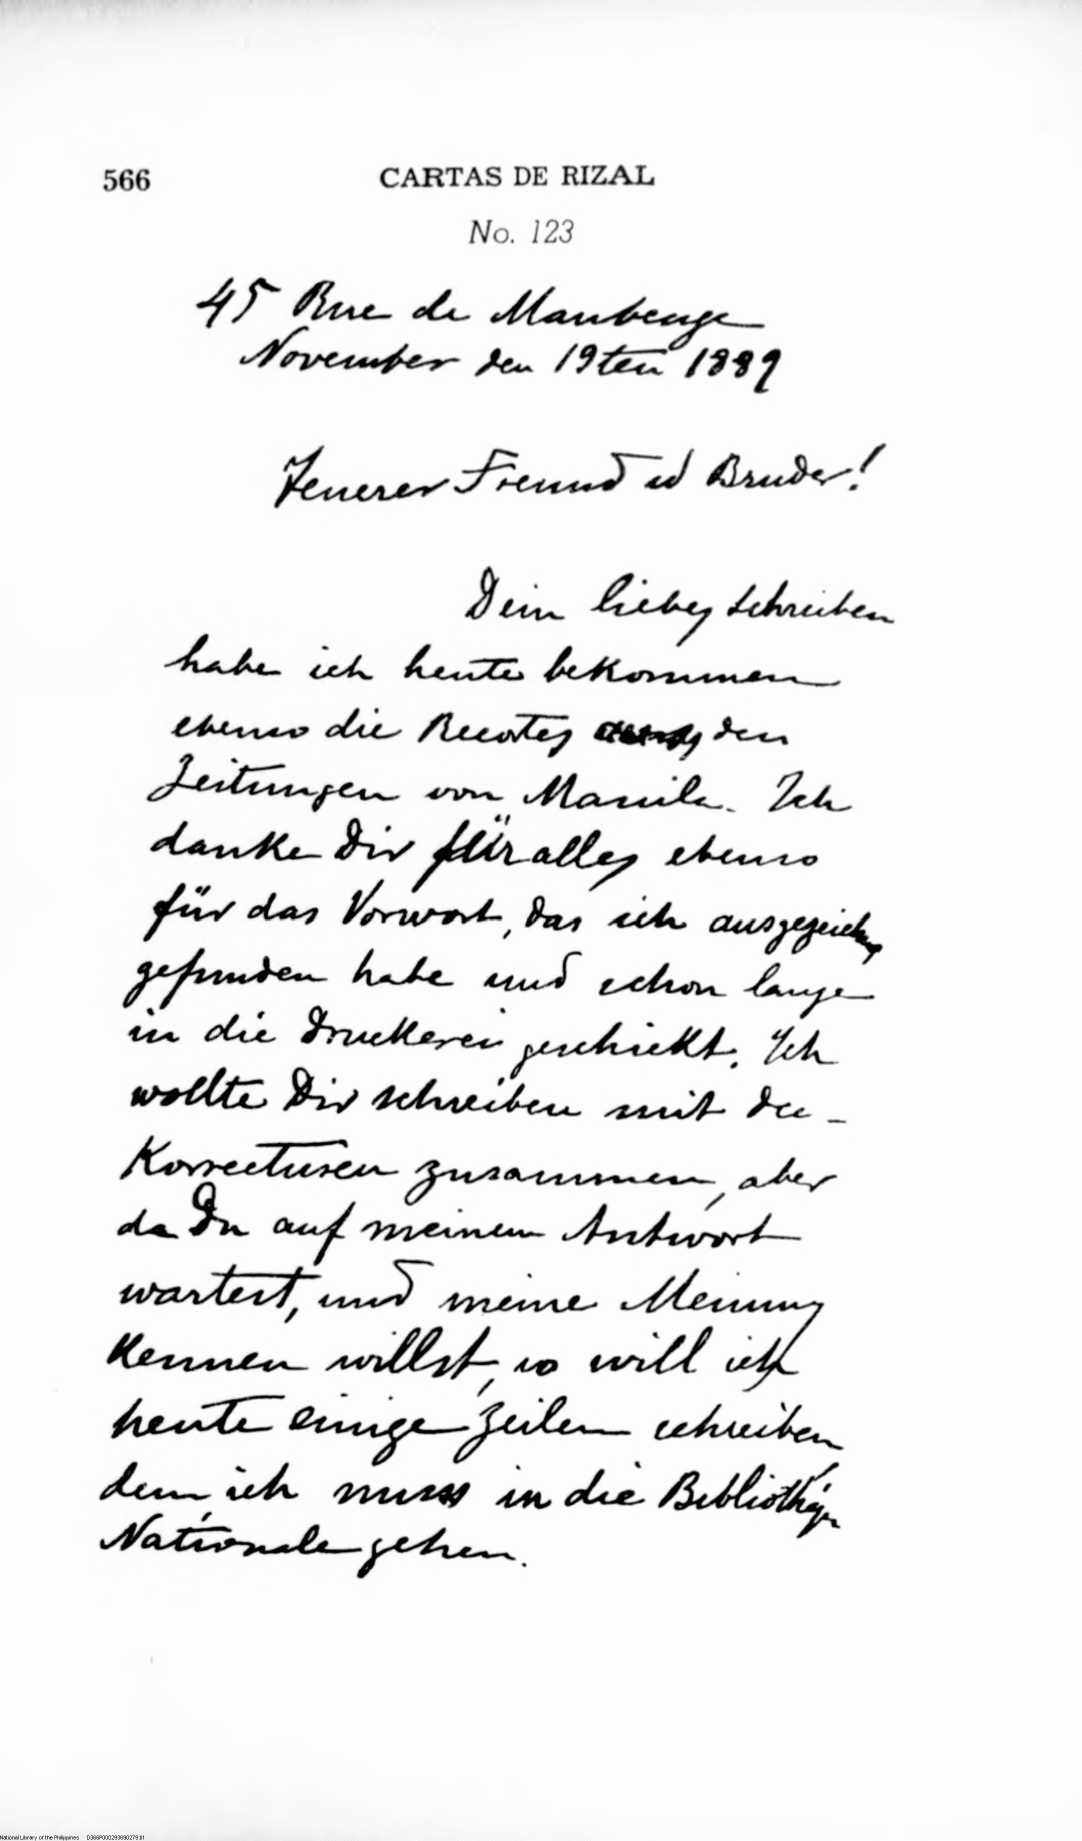 566 CARTAS DE RIZAL
No. 123
45 Rue de Maubeuge
November den 19ten 1889
Teuerer Freund u Bruder!
Dein liebes Schreiben
habe ich heute bekommen
ebenso die Recortes den
Zeitungen von Manila. Ich
danke Dir für alles ebenso
für das Vorwort, das ich ausgezeichnet
gefunden habe und schon lange
in die Druckerei geschickt. Ich
wollte Dir schreiben mit den
Korrecturen zusammen, aber
da Du auf meinem Antwort
wartest, und meine Meinung
kennen willst, so will ich
heute einige Zeilen schreiben
denn ich muss in die Bibliothèque
Nationale gehen.
National Library of the Philippines